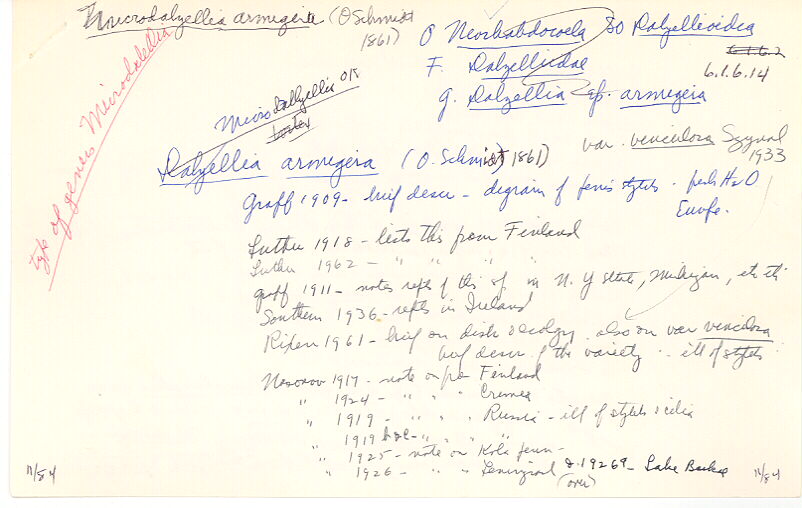 Microdalyellia armigera (O Schmidt 1861)
O Neorhabdocoela SO Dalyellioidea
6.1.6.2
F. Dalyelliidae
6.1.6.14
g. Dalyellia sp. armigera
type of genus Microdalyellia
Microdalyellia
today
var. venculosa 1933
Dalyellia armigera (O. Schmidt 1861)
Graff 1909 - brief descr - diagram of penis stylet. fresh H2O
Europe.
Luther 1918 - lists this from Finland
Luther 1962 - " " " "
Graff 1911 - notes repts of this sp. in N.Y. State, Michigan, etc etc
Southern 1936 - repts in Ireland
1961 - brief on distr & ecology. also on var venculosa
brief descr. of the variety - ill of stylets
Nasonov 1917 - note on from Finland
" 1924 - " " " Crimea
" 1919 - " " " Russia - ill of stylets & cilia
" 1919 - " " "
" 1925 - note on Kola Penn -
" 1926 - " " Leningrad & 1926a - Lake
(over)
11/84
11/84